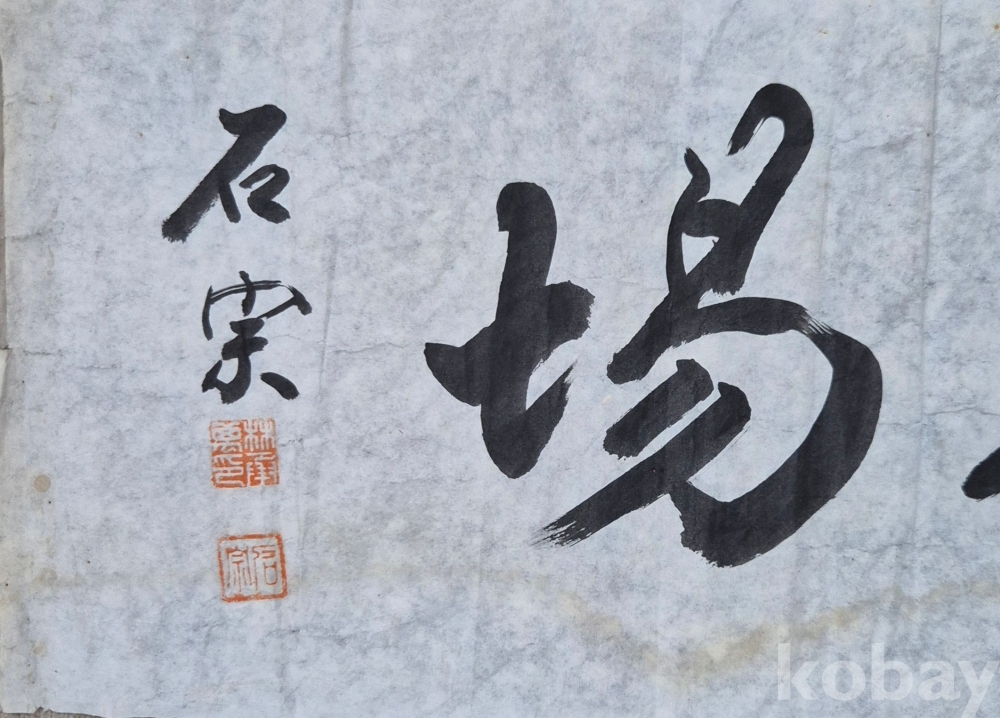 場
石宗
石宗
kobay